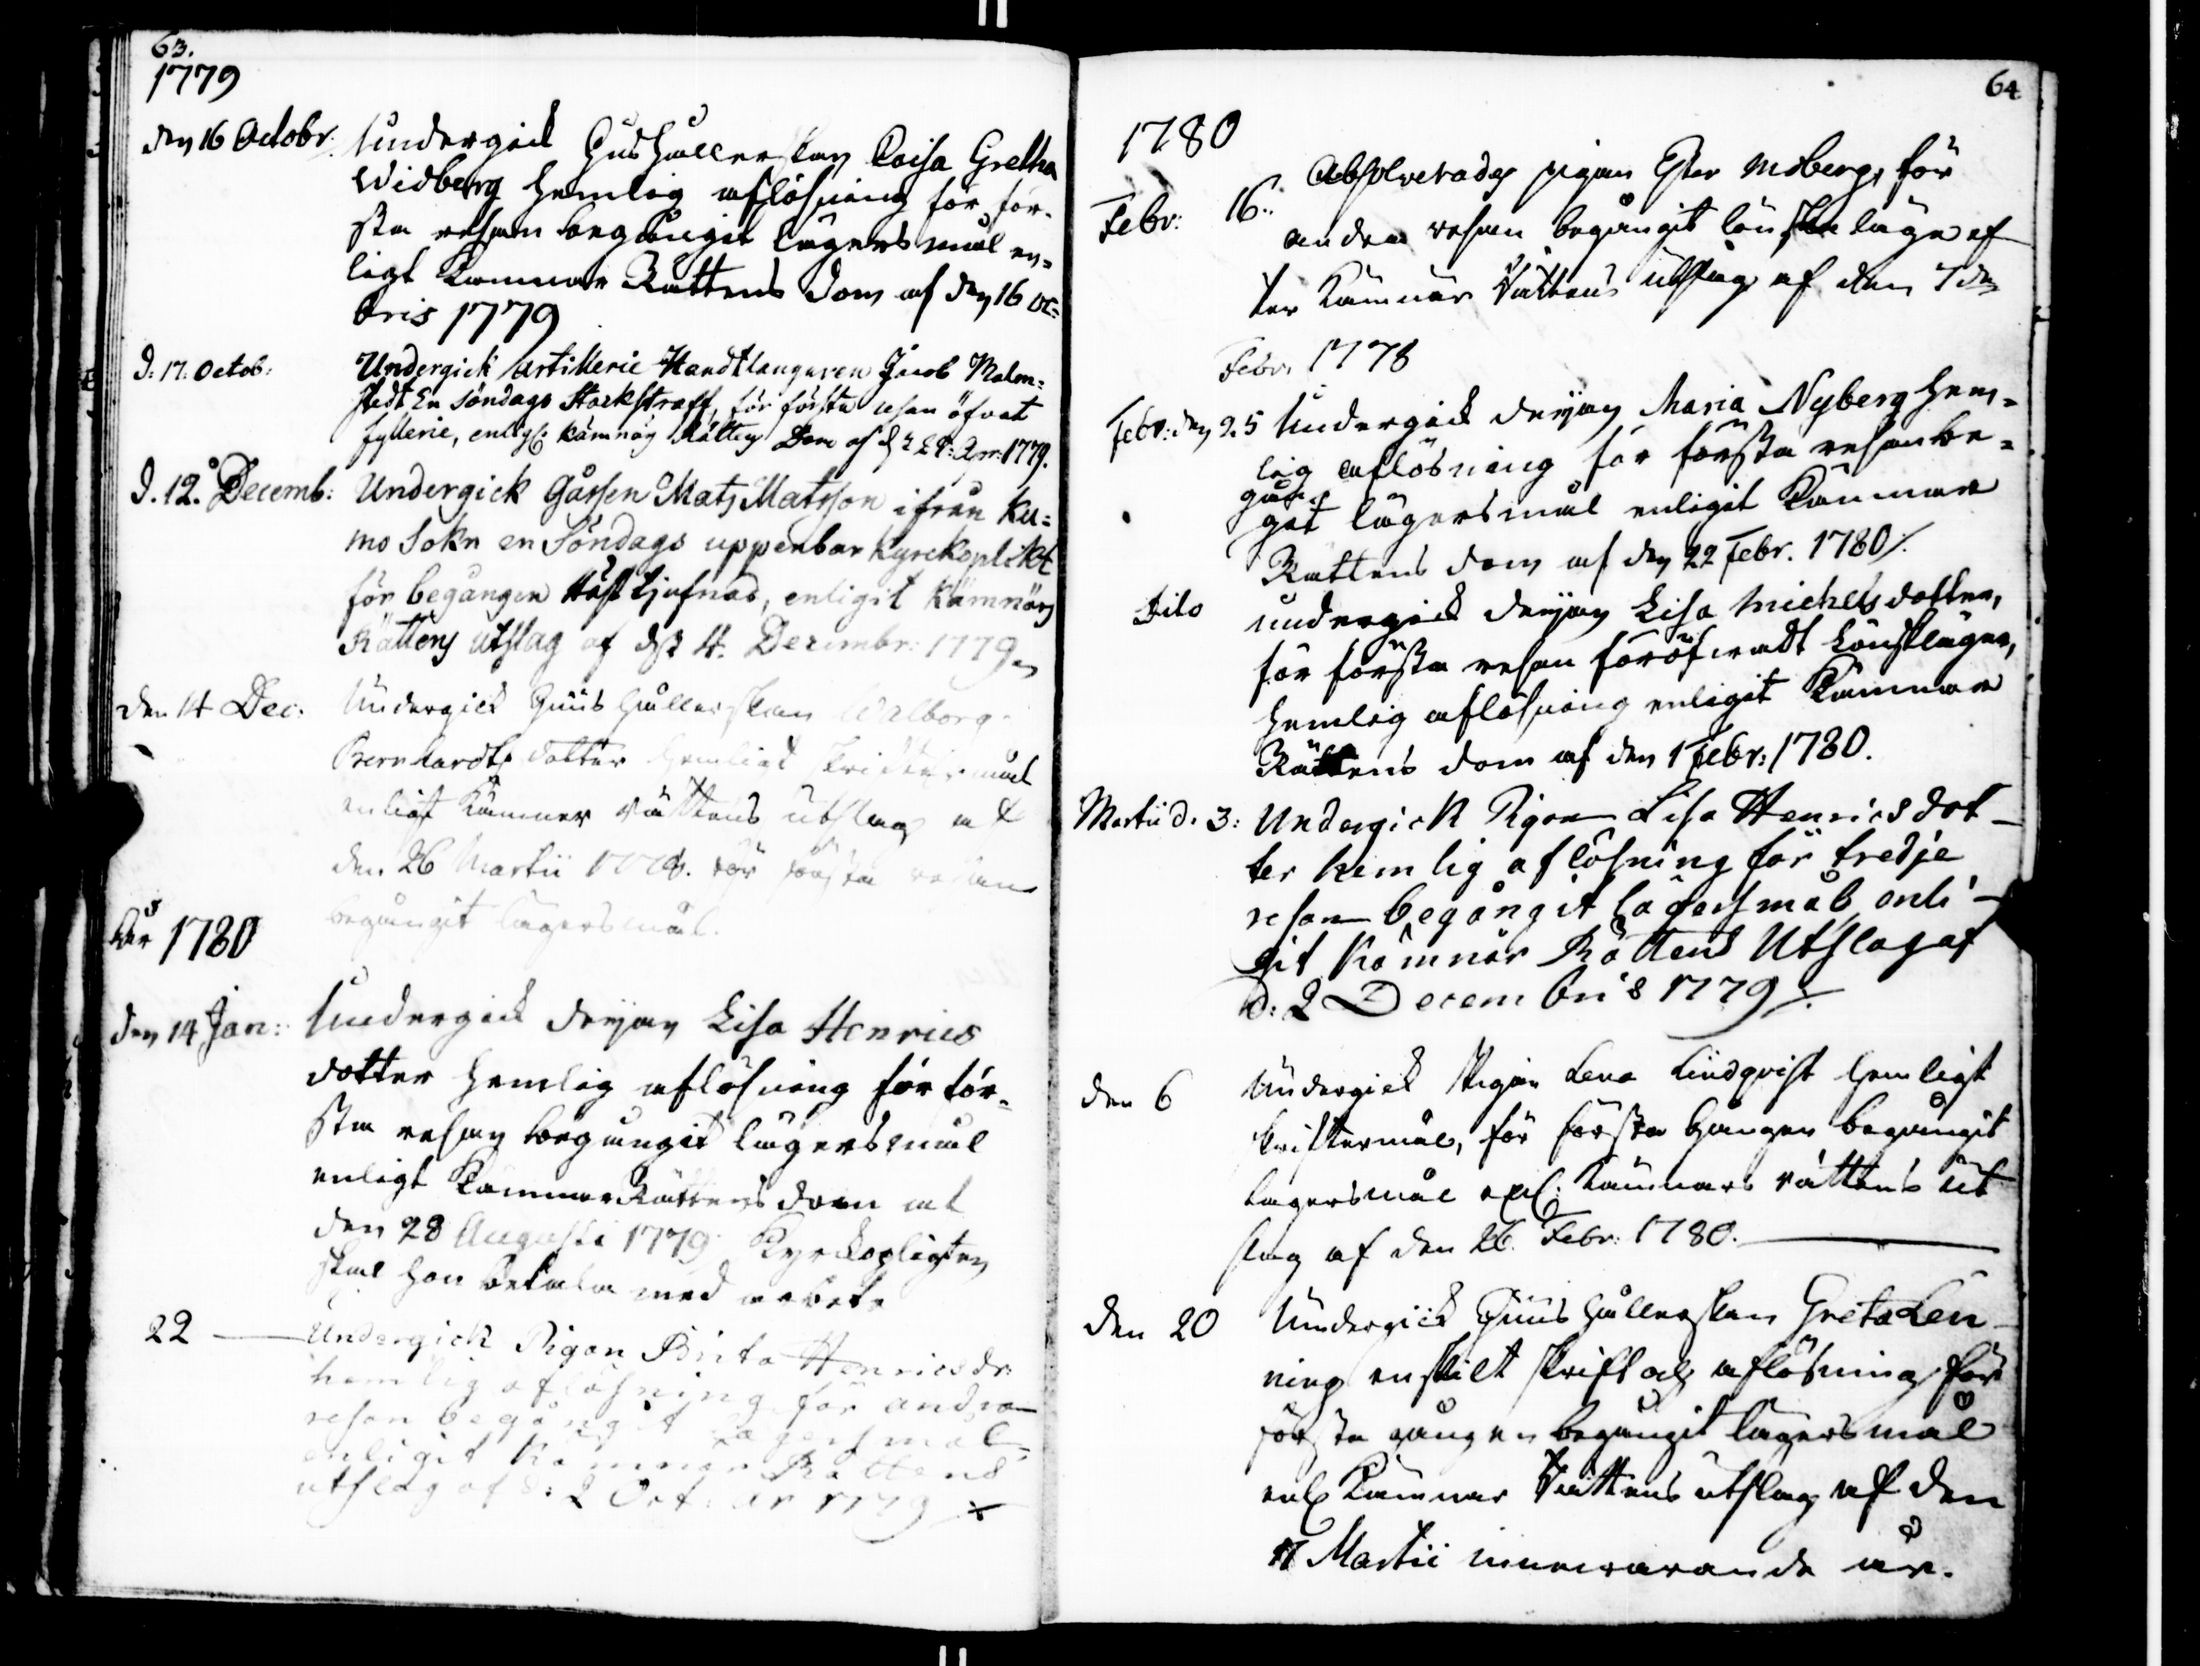 63.
1779
den 16 Octobr: Undergick Hushållerskan Caisa Gretha
Widberg hemlig aflösning för för-
sta resan begångit lägersmål en-
ligt Kämnär Rättens dom af den 16 oc-
bris 1779
d: 17: Octob: Undergick Artillerie Handtlangaren Jacob Malm-
stedt En Söndags Stockstraff, för första resan öfvat
fylleri, enligt Kämnärs Rättens Dom af 1779.
d. 12. Decemb: Undergick Gåssen Mats Matsson ifrån Ku-
mo Sokn en Söndags uppenbar Kyrckoplickt
för begången Häst tjufnad, enligit Kämnärs
Rättens utslag af d. 4. Decembr: 1779
den 14 Dec: Undergick Huus hållerskan Walborg
Bernhardts dotter hemligt skriftermål
enligt Kämner rättens utslag af
den 26 Martii för första resan
begångit lägersmål.
År 1780
den 14 Jan: Undergick deijan Lisa Henrics
dotter hemlig aflösning för för-
sta resan begångit lägersmål
enligt Kämner Rättens dom af
den 28 Augusti 1779 Kyrckopligten
skal hon betala med arbete
22 — Undergick Pigan Brita Henricsdr:
hemlig aflösning för andra
resan begångit Lägersmål
enligit Kämnär Rättens
utslag af d: 2 Oct: år 1779
64
1780
Febr: 16: Absolverades pigan Ester Moberg, för
andra resan begångit lönskaläge ef-
ter Kämnärs Rättens utslag af den 7de
Febr. 1778
Febr: den 25 Undergick deijan Maria Nyberg hem-
lig aflösning för första resan be-
gån
git lägersmål enligit Kämnär
Rättens dom af den 22 Febr. 1780 /.
Dito undergick deijan Lisa Michelsdotter,
för första resan föröfwadt Lönskläger,
hemlig aflösning enligit Kämnär
Rättens dom af den 1 Febr: 1780.
Martii d. 3: Undergick Pigan Lisa Henricsdot-
ter hemlig aflösning för tredje
resan begångit lägersmål enli-
git Kämnär Rättens Utslag af
d: 2 Decembris 1779 /.
den 6 Undergick Pigan Lena Lindqvist hemligt
skriftermål, för första gången begångit
lägersmål enl: Kämnärs rättens ut
slag af den 26. Febr: 1780.
den 20 Undergick Huus hållerskan Greta Len-
ning enskilt skrift och aflösning för
första gången begångit lägersmål
enl: Kämnär Rättens utslag af den
11 Martii innewarande år.